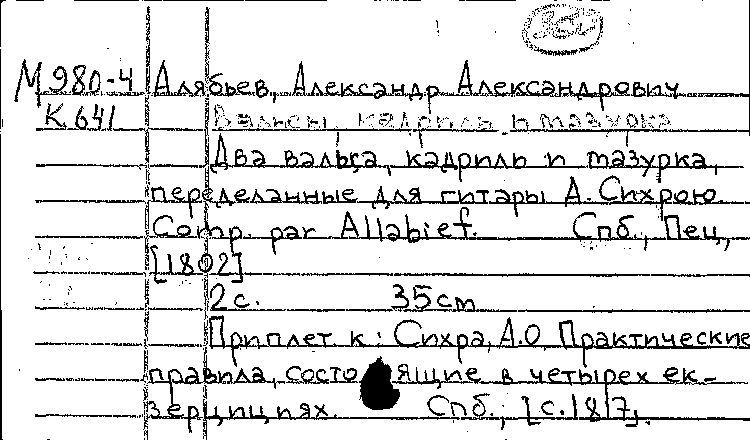 М 980-4 Алябьев, Александр Александрович
К 641 Вальсы, кадриль и мазурка
Два вальса, кадриль и мазурка,
переделанные для гитары А. Сихрою.
Comp. par Allabief. Спб., Пец,
[1802]
2 с. 35 cm
Приплет к: Сихра, А.О. Практические
правила, состоящие в четырех ек-
зерцициях. Спб., [с. 1817].